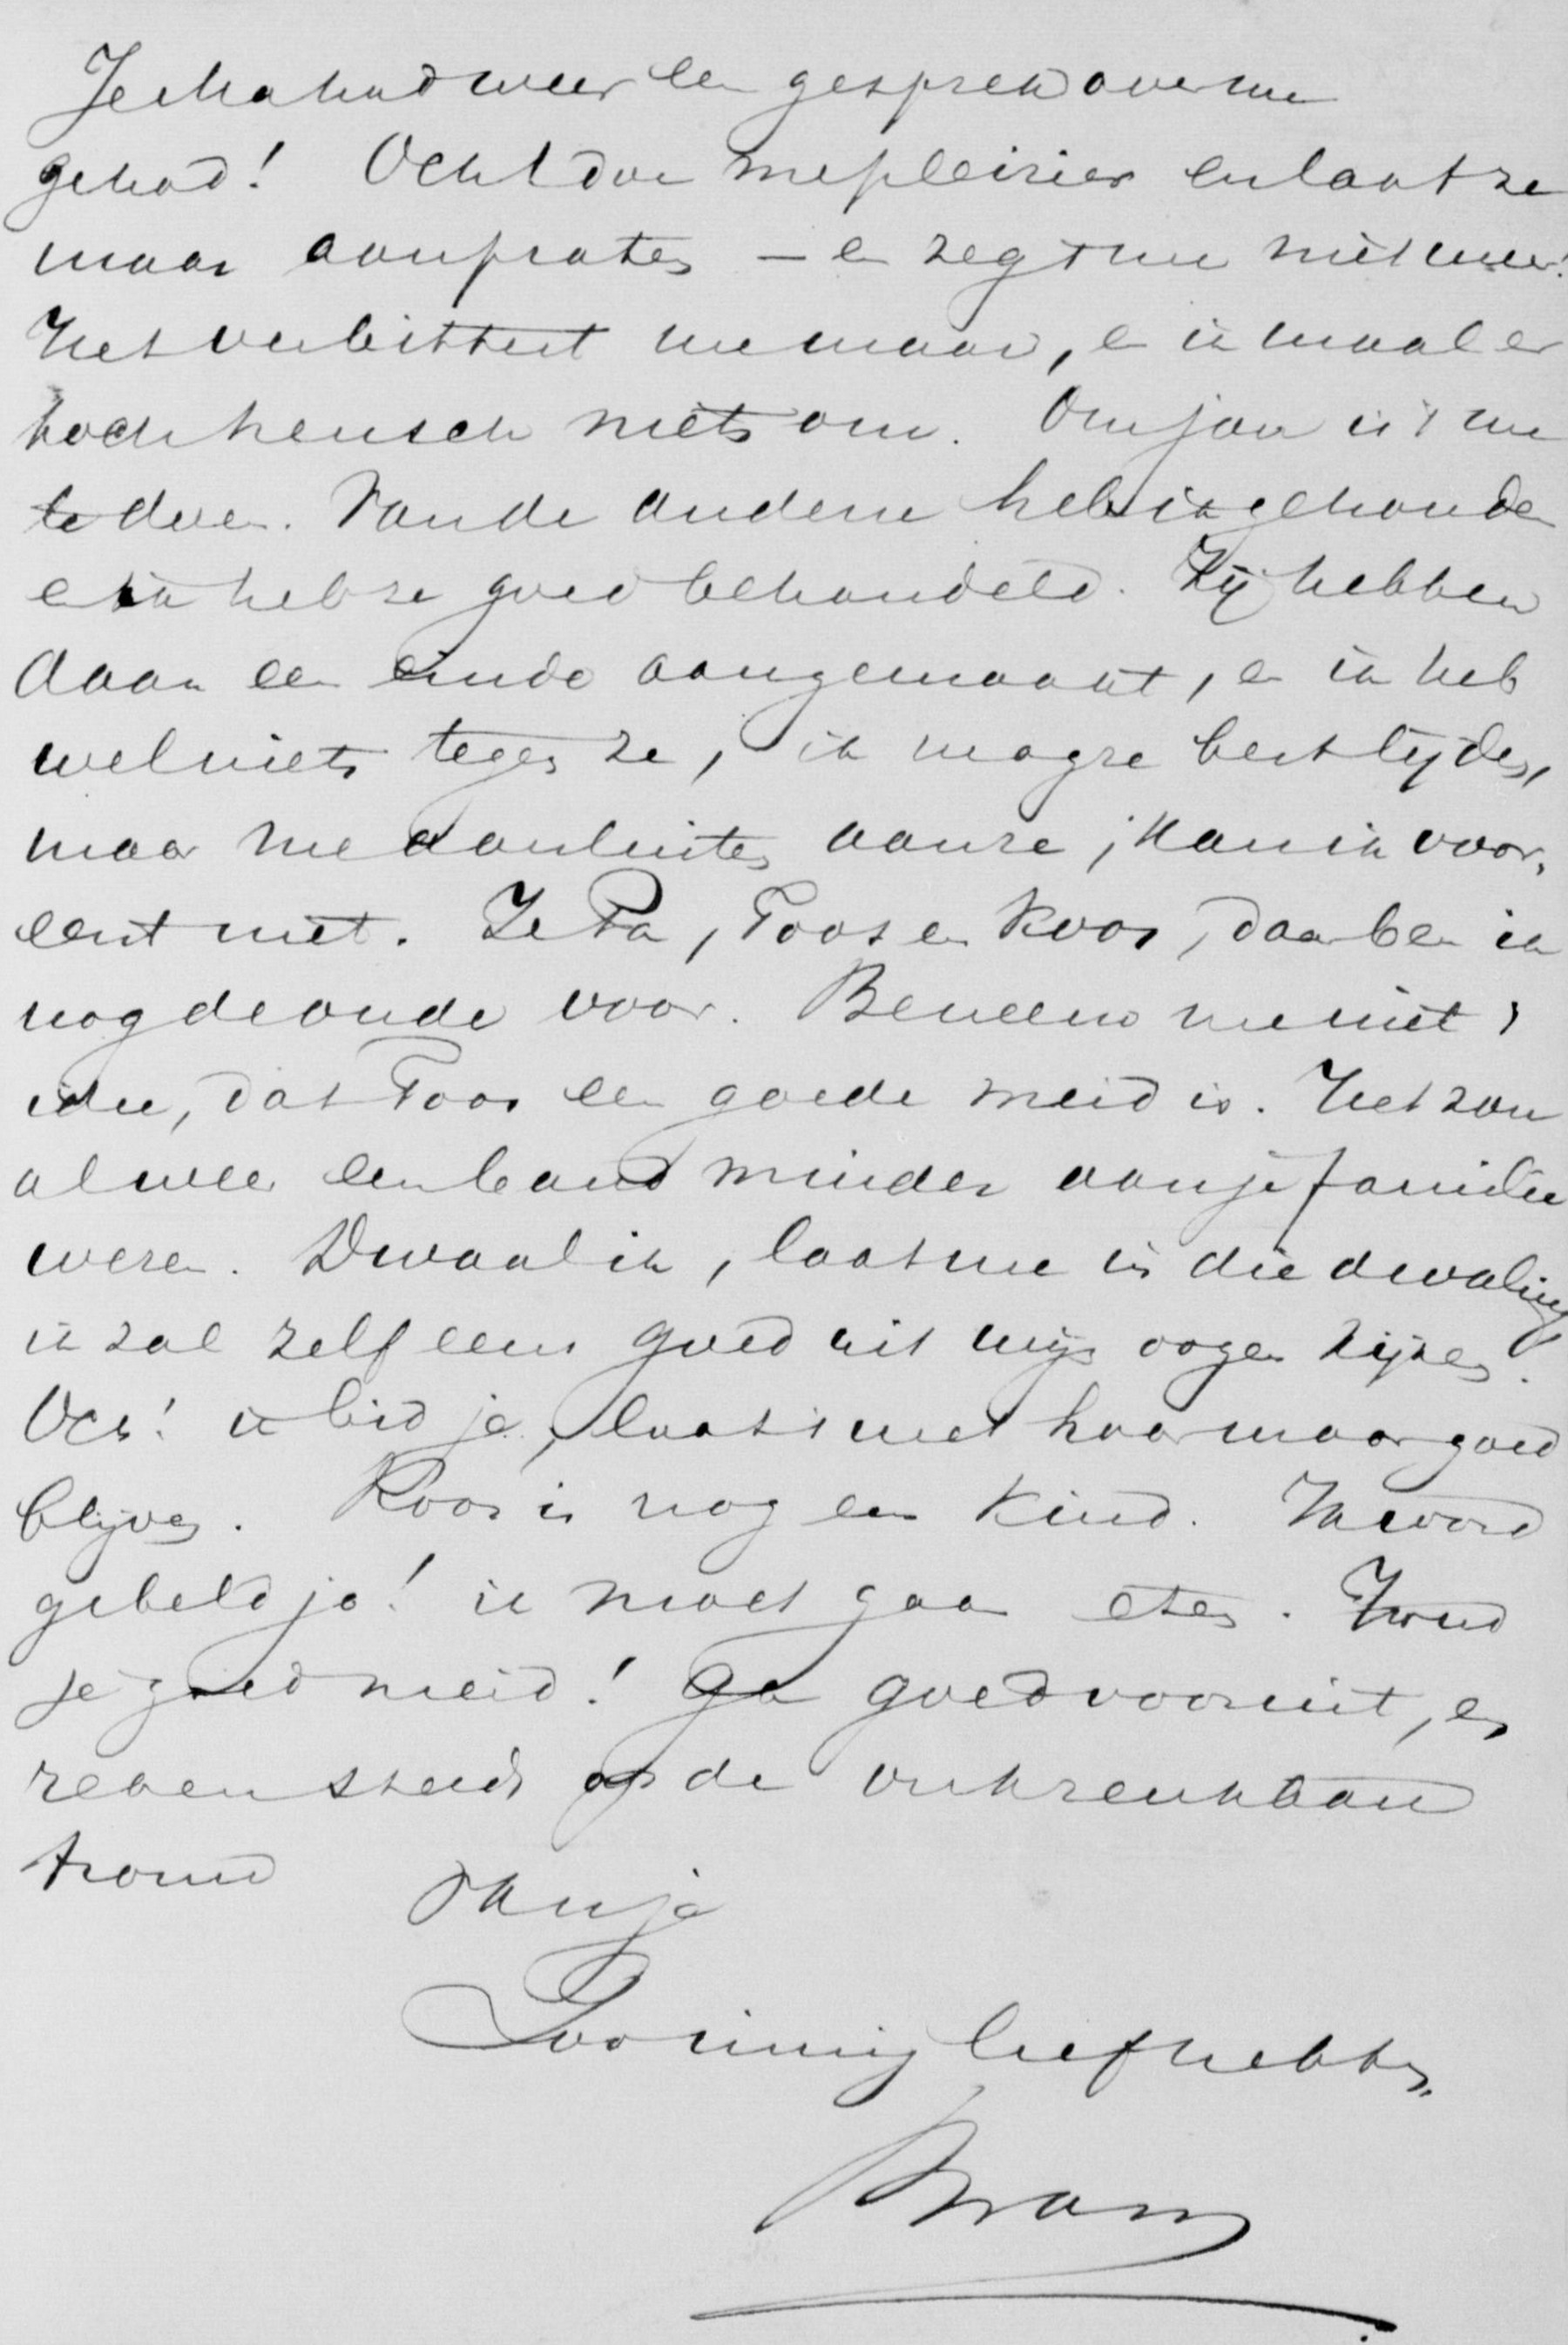 Je Ma had weer een gesprek over me
gehad! Och! doe me pleizier en laat ze
maar aanpraten – en zeg 't me niet meer!
Het verbittert me maar, en ik maal er
toch heusch niets om. Om jou is 't me
te doen. Van de anderen heb ik gehouden
en ik heb ze goed behandeld. Zij hebben
daar een einde aangemaakt, en ik heb
wel niets tegen ze, ik mag ze best lijden,
maar me aansluiten aan ze, kan ik voor-
eerst niet. Je Pa, Toos en Koos, daar ben ik
nog de oude voor. Beneem me niet 't
idee, dat Toos een goede meid is. Het zou
alweer een band minder aan je familie
wezen. Dwaal ik, laat me in die dwaling
ik zal zelf eens goed uit mijn oogen kijken.
Och! ik bid je, laat 't met haar maar goed
blijven. Koos is nog een kind. Ik word
gebeld jo! ik moet gaan eten. Houd
je goed meid! Ga goed vooruit, en
reken steeds op de onkreukbare
trouw
van je
Zoo innig liefhebb.
Bram